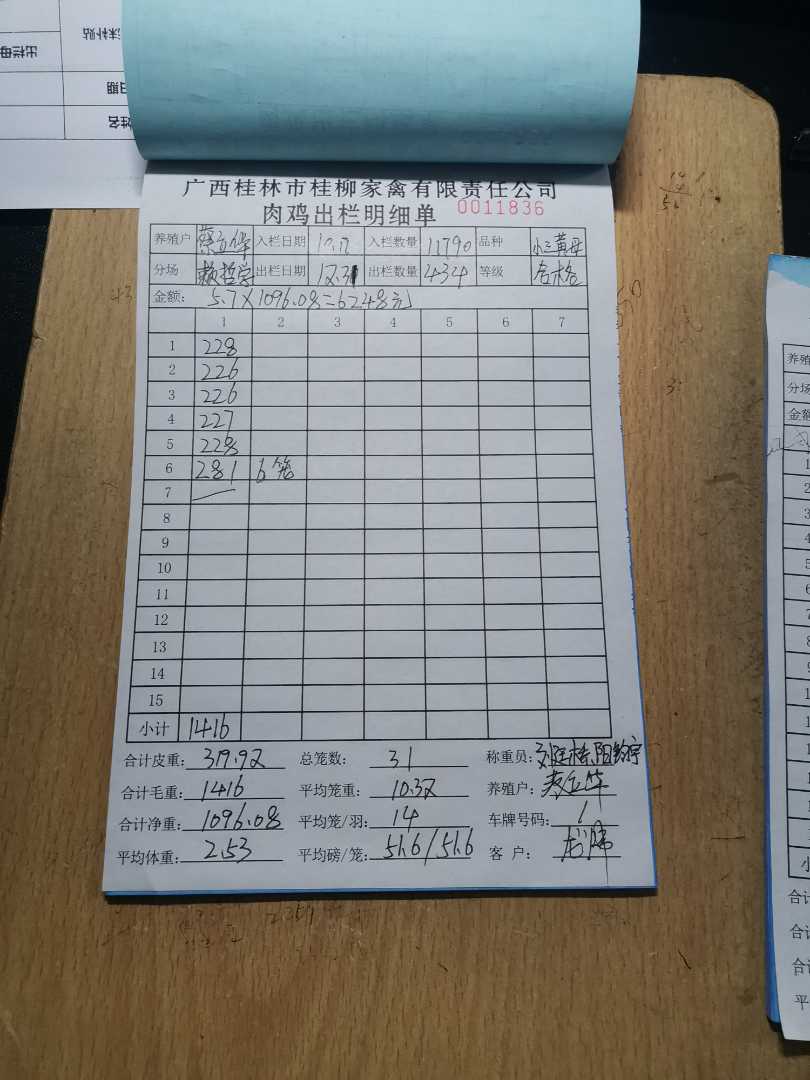 广西桂林市桂柳家禽有限责任公司
肉鸡出栏明细单 0011836
养殖户 蔡立华 入栏日期 入栏数量 11790 品种 小三黄母
分场 赖哲学 出栏日期 12.31 出栏数量 434 等级 合格
金额: 5.7×1096.08=6248元
1 2 3 4 5 6 7
1 228
2 226
3 226
4 227
5 228
6 281 6笼
7
8
9
10
11
12
13
14
15
小计 1416
合计皮重: 319.92 总笼数: 31 称重员:
合计毛重: 1416 平均笼重: 10.32 养殖户: 蔡立华
合计净重: 1096.08 平均笼/羽: 14 车牌号码: 1
平均体重: 2.53 平均磅/笼: 51.6/51.6 客户:
沫补贴
出栏母
日期
姓名
养殖
分场
金额
小
合计
合计
合计
平